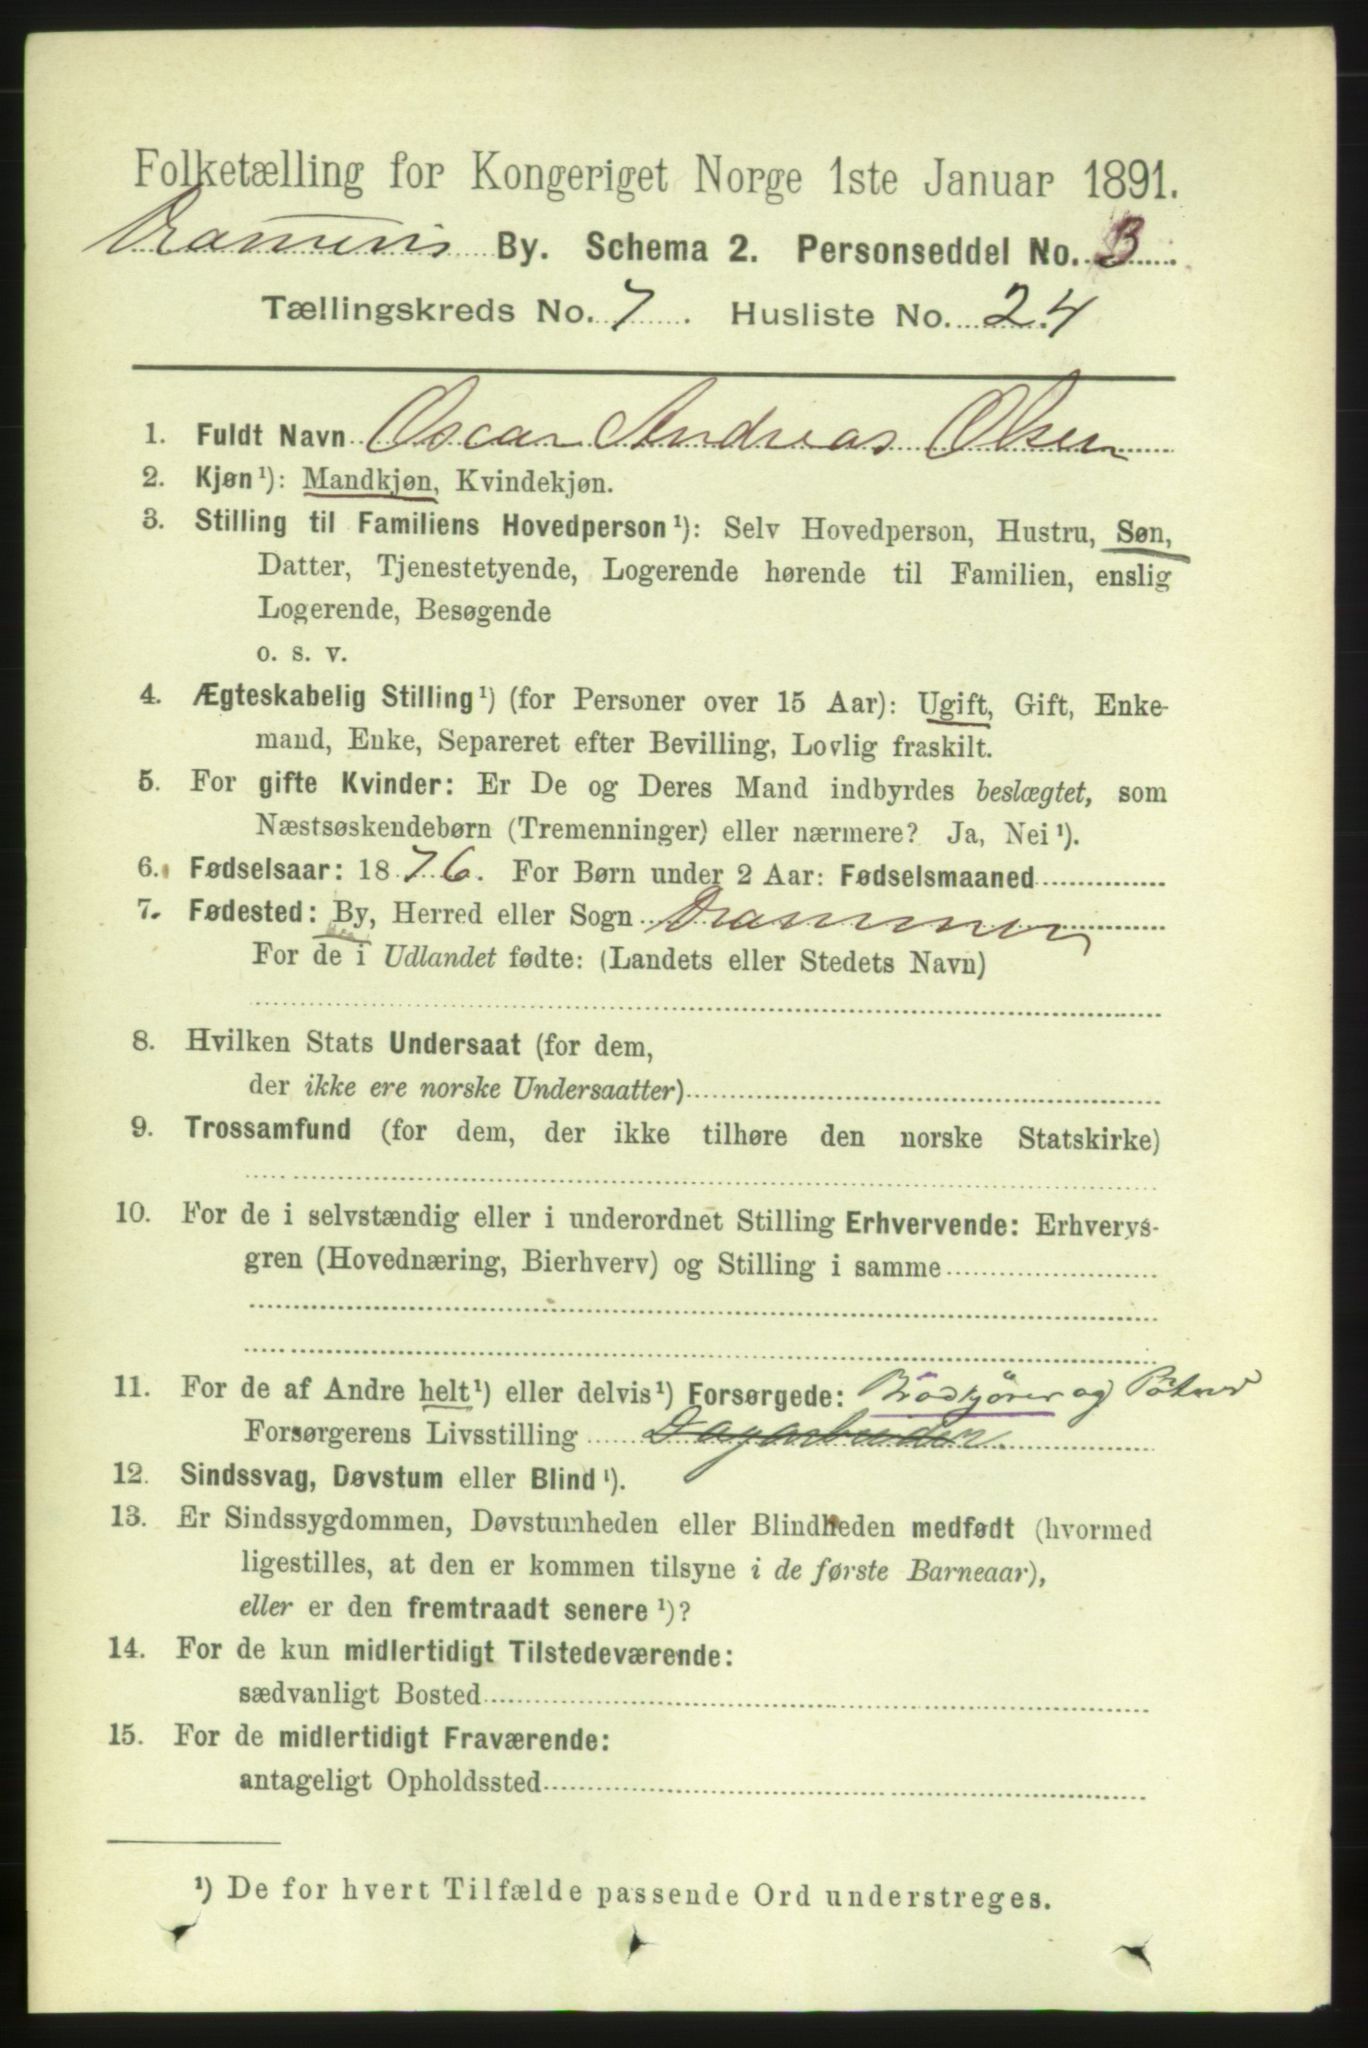 Folketælling for Kongeriget Norge 1ste Januar 1891.
Drammens By. Schema 2. Personseddel No. 3.
Tællingskreds No. 7. Husliste No. 24
1. Fuldt Navn Oscar Andreas Olsen
2. Kjøn¹): Mandkjøn, Kvindekjøn.
3. Stilling til Familiens Hovedperson¹): Selv Hovedperson, Hustru, Søn,
Datter, Tjenestetyende, Logerende hørende til Familien, enslig
Logerende, Besøgende
o. s. v.
4. Ægteskabelig Stilling¹) (for Personer over 15 Aar): Ugift, Gift, Enke-
mand, Enke, Separeret efter Bevilling, Lovlig fraskilt.
5. For gifte Kvinder: Er De og Deres Mand indbyrdes beslægtet, som
Næstsøskendebørn (Tremenninger) eller nærmere? Ja, Nei¹).
6. Fødselsaar: 1876. For Børn under 2 Aar: Fødselsmaaned
7. Fødested: By, Herred eller Sogn Drammen
For de i Udlandet fødte: (Landets eller Stedets Navn)
8. Hvilken Stats Undersaat (for dem,
der ikke ere norske Undersaatter)
9. Trossamfund (for dem, der ikke tilhøre den norske Statskirke)
10. For de i selvstændig eller i underordnet Stilling Erhvervende: Erhvervs-
gren (Hovednæring, Bierhverv) og Stilling i samme
11. For de af Andre helt¹) eller delvis¹) Forsørgede: Brødkjører og
Forsørgerens Livsstilling Dagarbeider.
12. Sindssvag, Døvstum eller Blind¹).
13. Er Sindssygdommen, Døvstumheden eller Blindheden medfødt (hvormed
ligestilles, at den er kommen tilsyne i de første Barneaar),
eller er den fremtraadt senere¹)?
14. For de kun midlertidigt Tilstedeværende:
sædvanligt Bosted
15. For de midlertidigt Fraværende:
antageligt Opholdssted
¹) De for hvert Tilfælde passende Ord understreges.